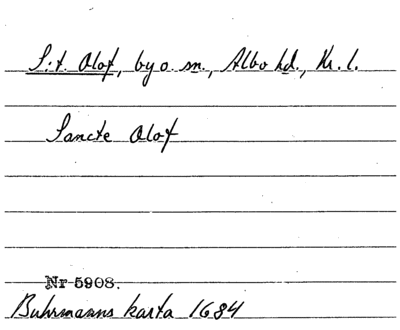 S:t Olof, by o. sn., Albo hd., Kr. l.
Sancte Olof
Nr 5908.
Buhrmanns karta 1684